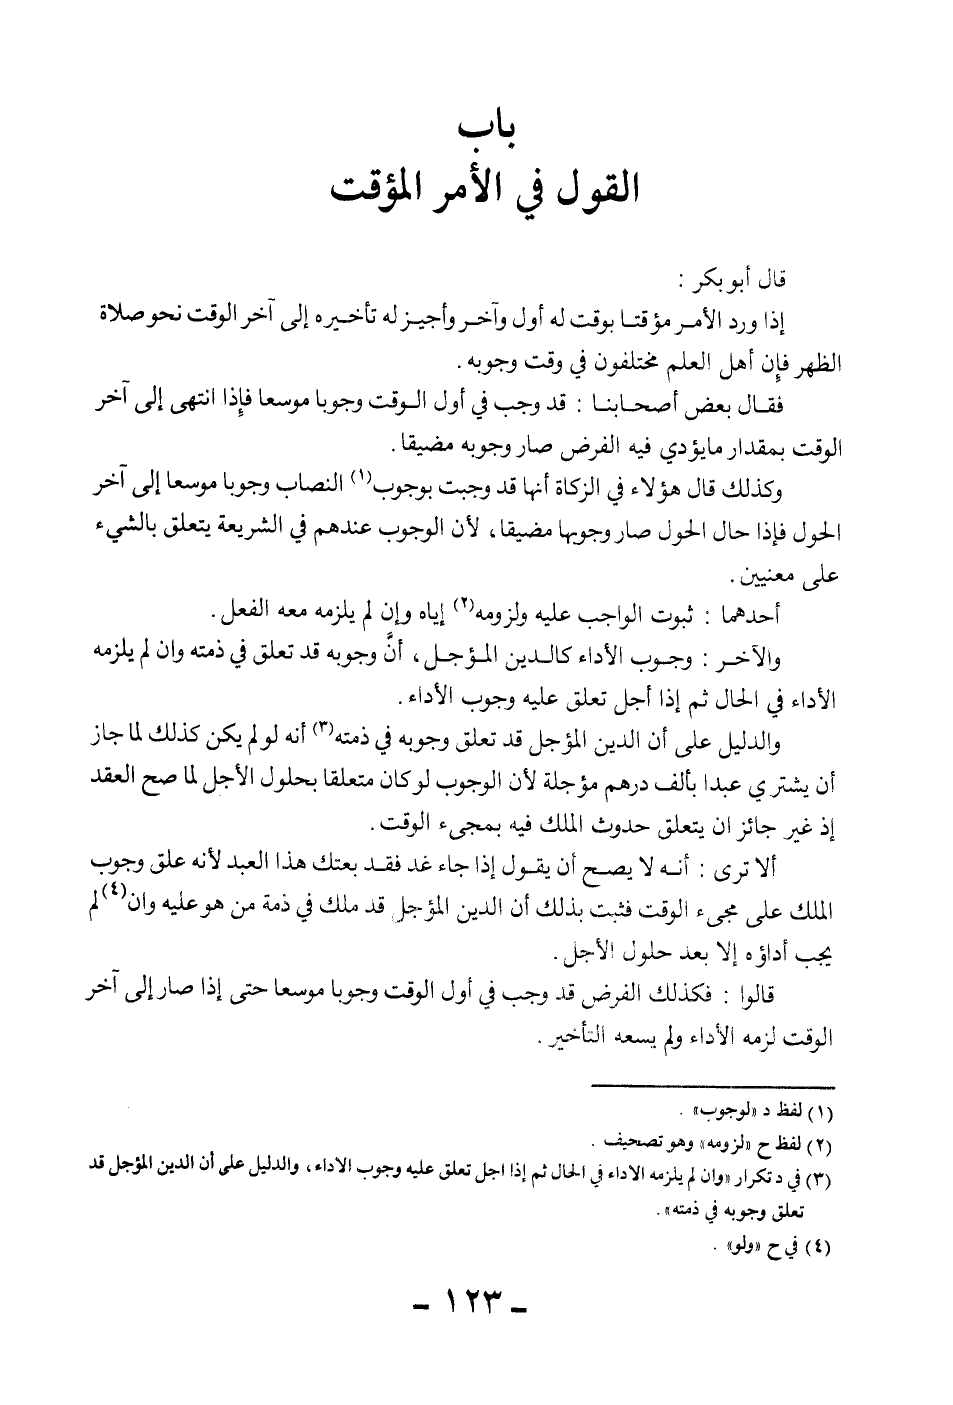 باب
القول في الأمر المؤقت
قال أبو بكر :
إذا ورد الأمر مؤقتا بوقت له أول وآخر وأجيز له تأخيره إلى آخر الوقت نحو صلاة
الظهر فإن أهل العلم مختلفون في وقت وجوبه .
فقال بعض أصحابنا : قد وجب في أول الوقت وجوبا موسعا فإذا انتهى إلى آخر
الوقت بمقدار مايؤدي فيه الفرض صار وجوبه مضيقا .
وكذلك قال هؤلاء في الزكاة أنها قد وجبت بوجوب(١) النصاب وجوبا موسعا إلى آخر
الحول فإذا حال الحول صار وجوبها مضيقا، لأن الوجوب عندهم في الشريعة يتعلق بالشيء
على معنيين .
أحدهما : ثبوت الواجب عليه ولزومه(٢) إياه وإن لم يلزمه معه الفعل .
والآخر : وجوب الأداء كالدين المؤجل، أنَّ وجوبه قد تعلق في ذمته وان لم يلزمه
الأداء في الحال ثم إذا أجل تعلق عليه وجوب الأداء .
والدليل على أن الدين المؤجل قد تعلق وجوبه في ذمته(٣) أنه لو لم يكن كذلك لما جاز
أن يشتري عبدا بألف درهم مؤجلة لأن الوجوب لو كان متعلقا بحلول الأجل لما صح العقد
إذ غير جائز ان يتعلق حدوث الملك فيه بمجىء الوقت .
ألا ترى : أنه لا يصح أن يقول إذا جاء غد فقد بعتك هذا العبد لأنه علق وجوب
الملك على مجىء الوقت فثبت بذلك أن الدين المؤجل قد ملك في ذمة من هو عليه وان(٤) لم
يجب أداؤه إلا بعد حلول الأجل .
قالوا : فكذلك الفرض قد وجب في أول الوقت وجوبا موسعا حتى إذا صار إلى آخر
الوقت لزمه الأداء ولم يسعه التأخير .
(١) لفظ د «لوجوب» .
(٢) لفظ ح «لزومه» وهو تصحيف .
(٣) في د تكرار «وان لم يلزمه الاداء في الحال ثم إذا اجل تعلق عليه وجوب الاداء، والدليل على أن الدين المؤجل قد
تعلق وجوبه في ذمته» .
(٤) في ح «ولو» .
- ١٢٣ -